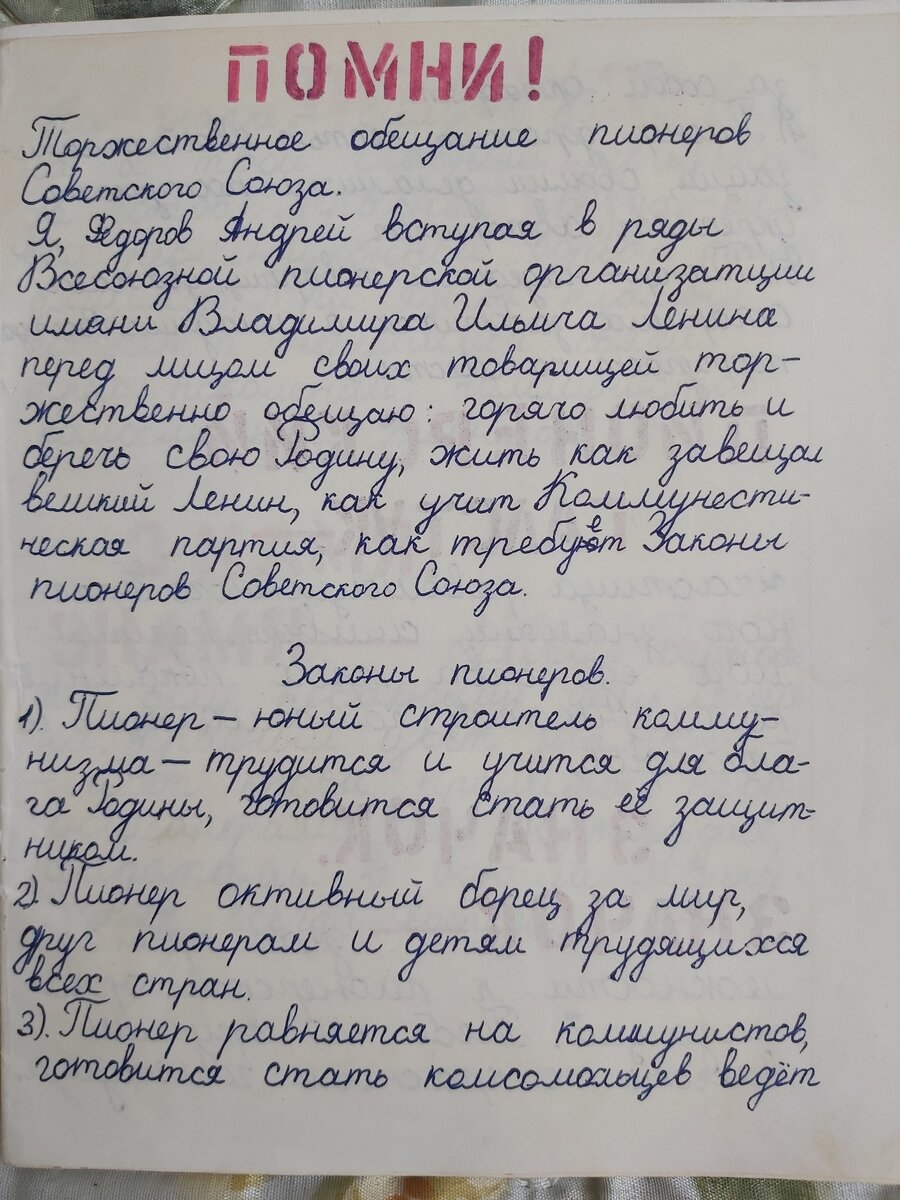 ПОМНИ!
Торжественное обещание пионеров
Советского Союза.
Я, Фёдоров Андрей вступая в ряды
Всесоюзной пионерской организатции
имани Владимира Ильича Ленина
перед лицом своих товарищей тор-
жественно обещаю: горячо любить и
беречь свою Родину, жить как завещал
великий Ленин, как учит Коммунести-
ческая партия, как требует Законы
пионеров Советского Союза.
Законы пионеров.
1). Пионер — юный строитель комму-
низма — трудится и учится для бла-
га Родины, готовится стать её защит-
ником.
2). Пионер октивный борец за мир,
друг пионерам и детям трудящихся
всех стран.
3). Пионер равняется на коммунистов,
готовится стать комсомольцев ведёт